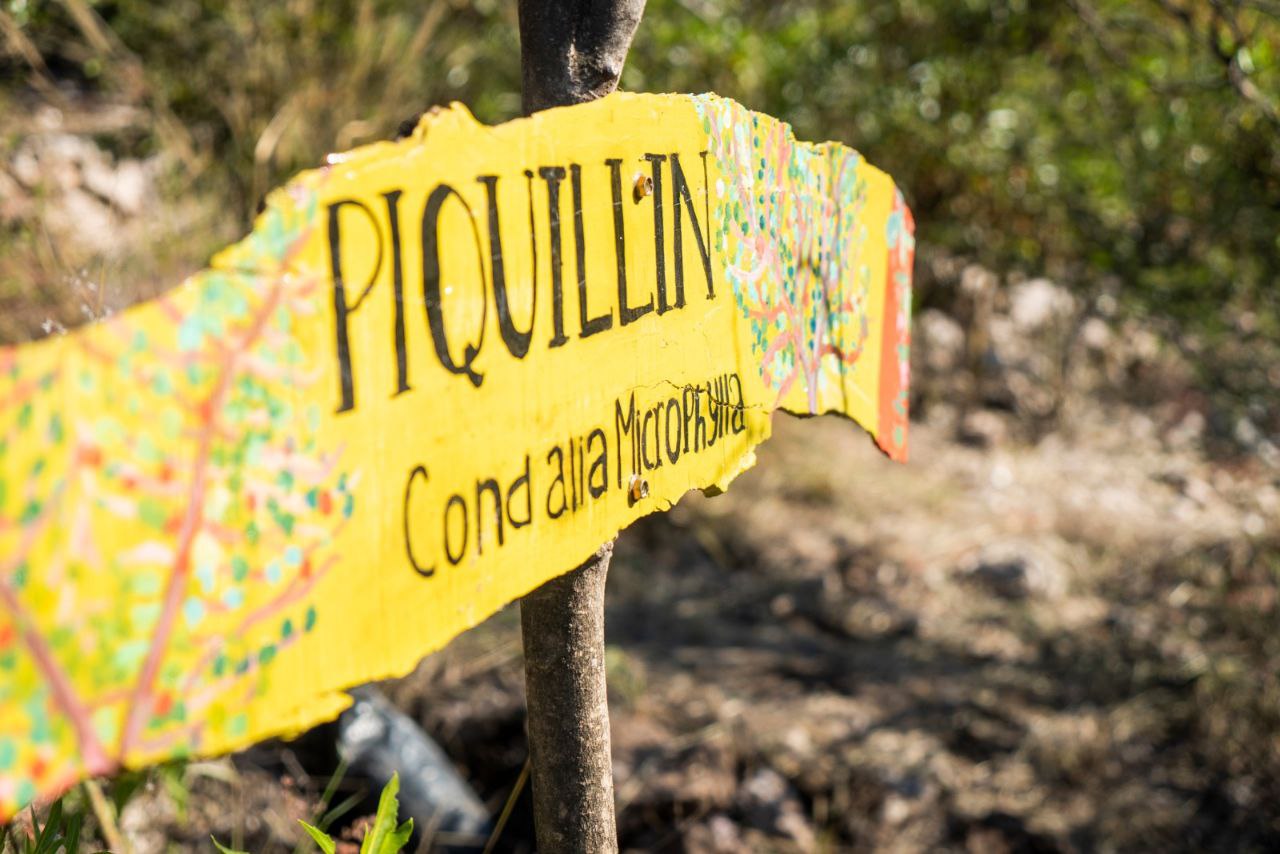 PIQUILLIN
Condalia Microphylla